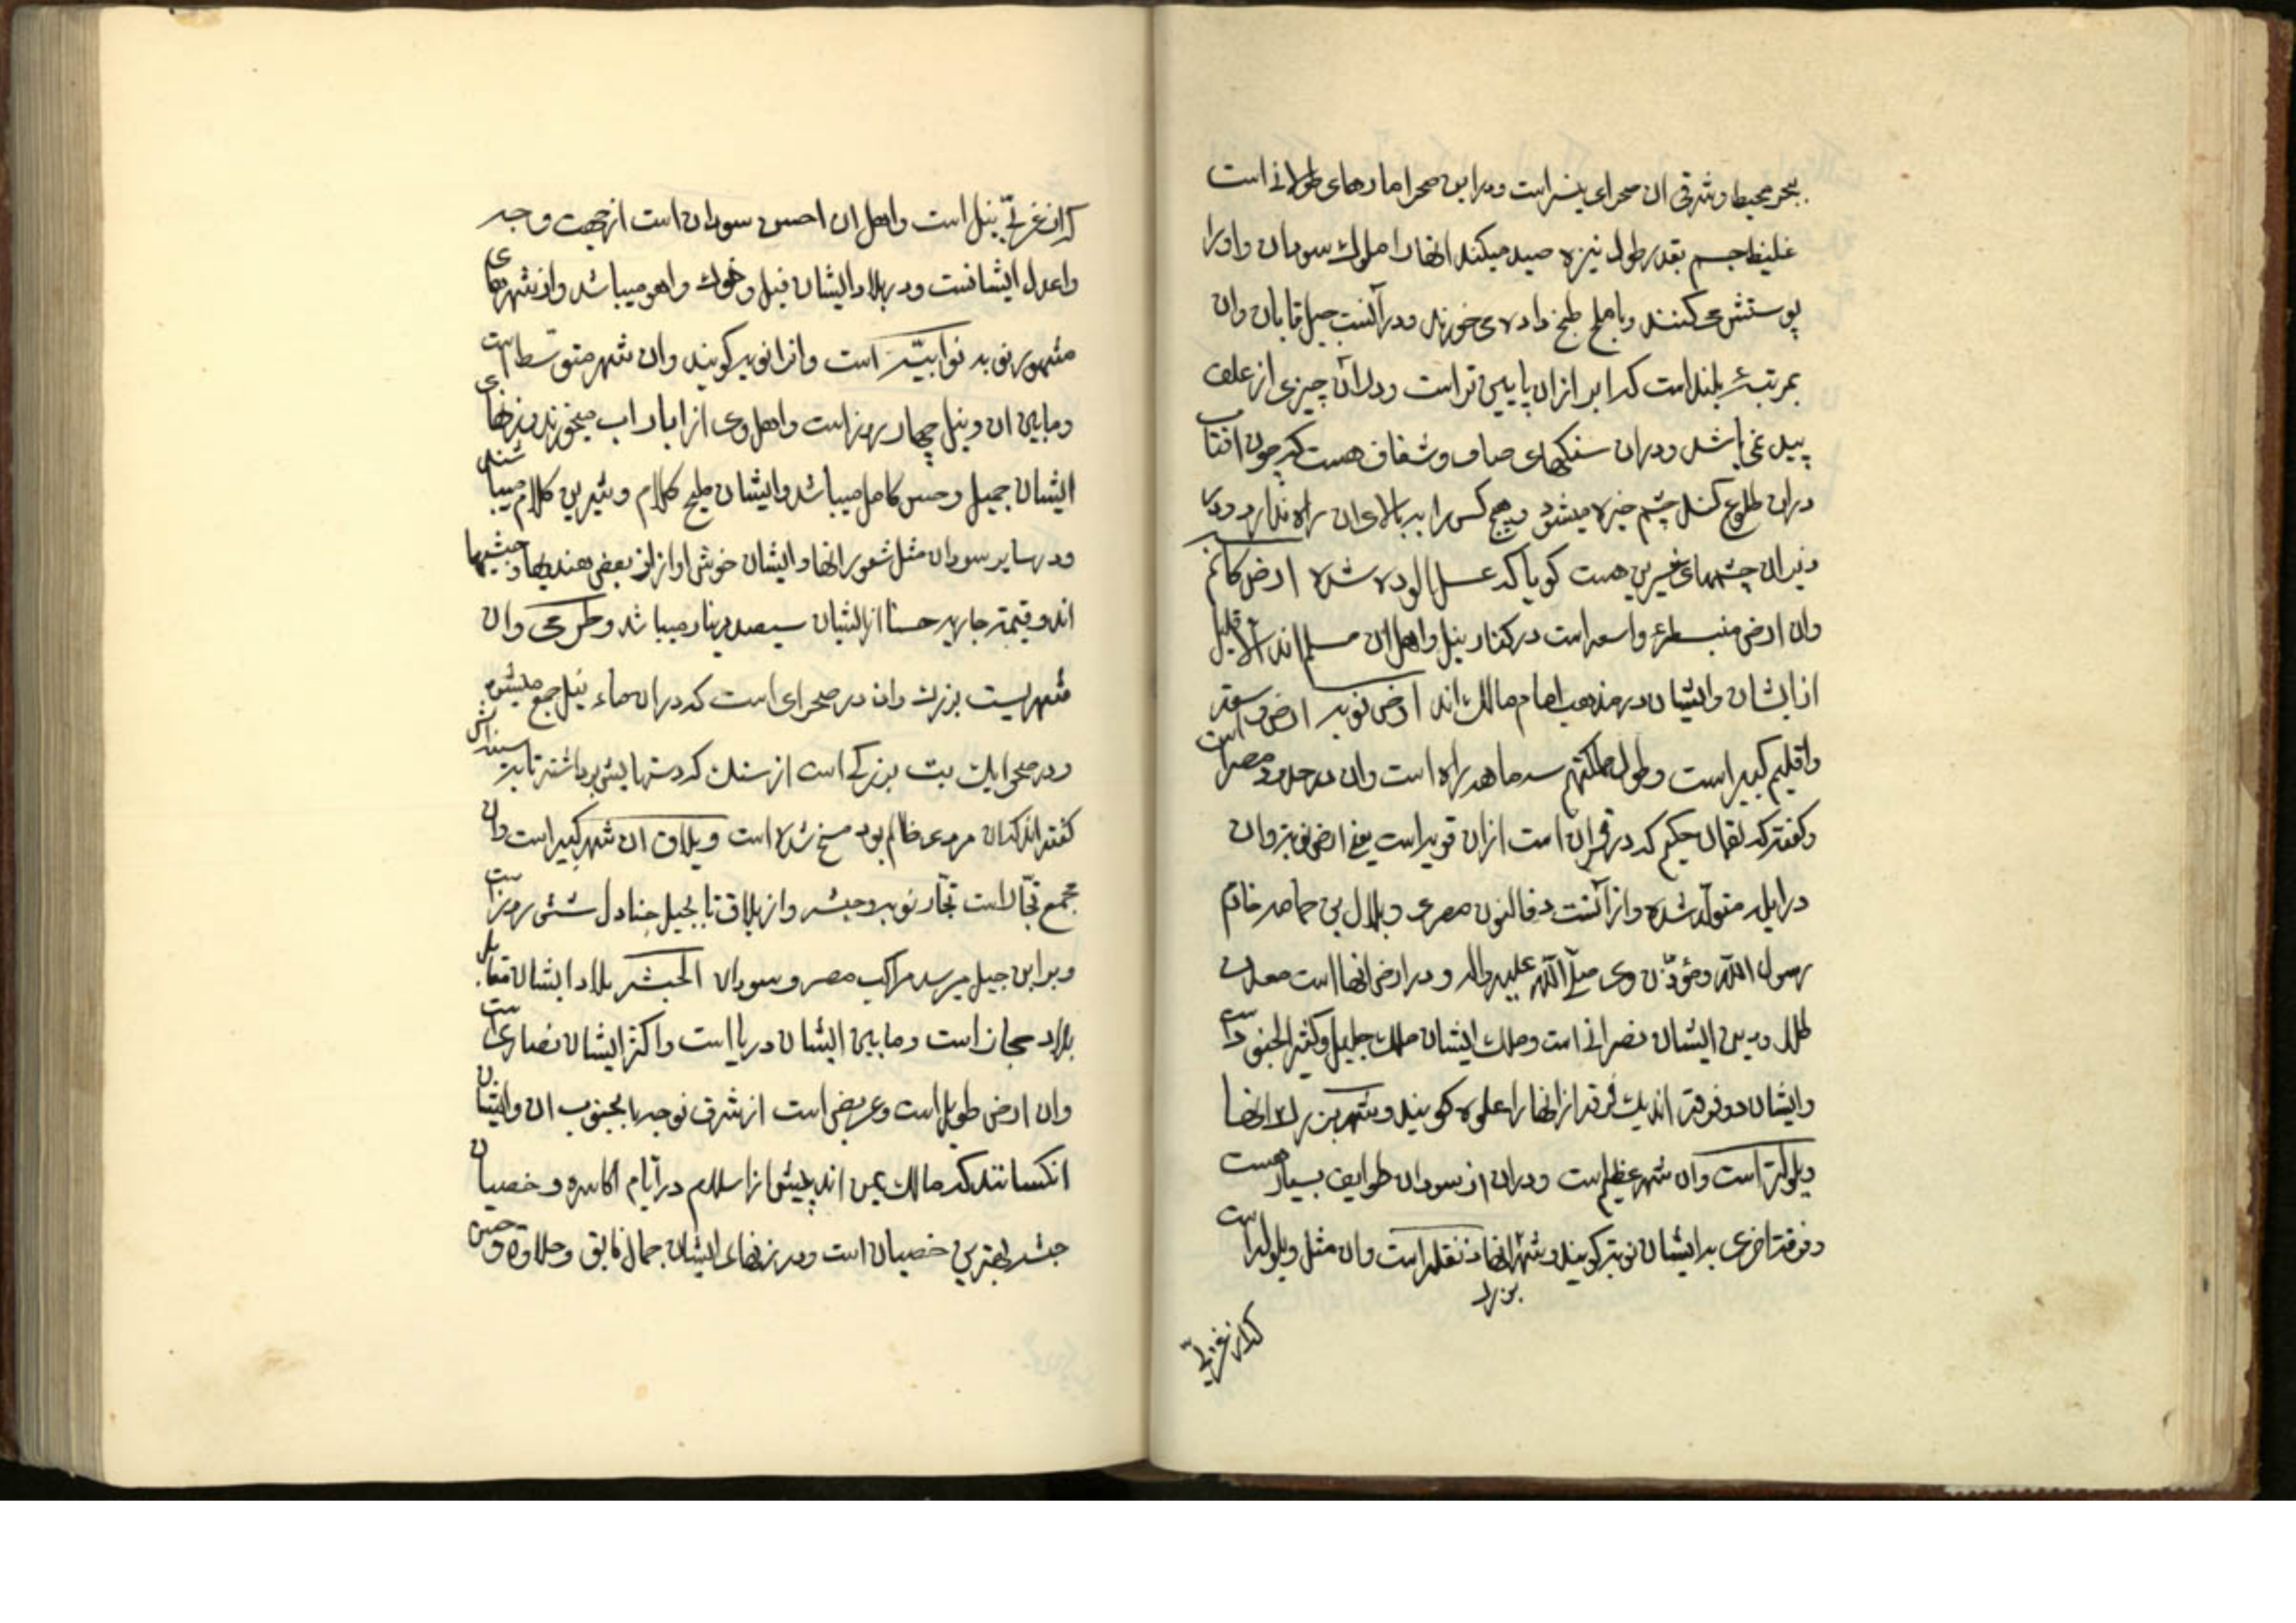 ببحر محیط و شرقی ان صحرای نیسر است و در این صحرا مارهای طولانی است
غلیظ جسم بقدر طول نیزه صید میکنند انها را ملوک سودان و او را
پوستش می کنند و با ملح طبخ داده می خورند و در آنست جبل قابان و ان
بمرتبهٔ بلند است که ابر ازان پایین تر است و در آن چیزی از علف
پید نمی باشد و دران سنکهای صاف و شفاف هست که چون افتاب
دران طلوع کند چشم خیره میشود و هیچ کس را به بالای ان راه ندارد و در
زیر ان چشمهای شیرین هست کویا که عسل الوده شده ارض کانم
وان ارض منبسطهٔ واسعه است در کنار نیل و اهل ان مسلم اند الا قلیل
از ایشان و ایشان در مذهب امام مالک اند ارض نوبه ارض وسعه
و اقلیم کبیر است و طول مملکتهم سه ماهه راه است وان در حدود مصر است
و کفته که لقمان حکیم که در قران است ازان قویه است یعنی ارض نوبه و ان
در ایله متولد شده و از آنست ذوالنون مصری و بلال بن حمامه خادم
رسول الله و مؤذن وی صلی الله علیه واله و در ارض انها است معدن
طلا و دین ایشان نصرانی است و ملک ایشان ملک جلیل و کثیر الجنود است
و ایشان دو فرقه اند یک فرقه از انها را علوه کویند و شهر بزرک انها
ویلوله است وان شهر عظیم است و دران از سودان طوایف بسیار هست
و فرقه اخری به ایشان نوبه کویند و شهر بزرک انها دنقله است وان مثل ویلوله است
که ان غربی
که ان غربی نیل است و اهل ان احسن سودان است از جهت وجه
و اعدل ایشانست و در بلاد ایشان فیل و خوک و اهو میباشد و از شهرهای
مشهور نوبه نوابیه است و انرا نوبه کویند و ان شهر متوسط است
و مابین ان و نیل چهار روز است و اهل وی از ابار اب میخورند و زنهای
ایشان جمیل و حسن کامل میباشد و ایشان ملیح کلام و شیرین کلام میباشند
و در سایر سودان مثل شعور انها و ایشان خوش اوازاند بعضی هندیها و حبشیها
اند و قیمة جاریه حسنا از ایشان سیصد دینار میباشد و طرمی و ان
شهریست بزرک وان در صحرای است که دران ماء نیل جمع میشود
و در صحرا یک بت بزرکی است از سنک که دستهایش برداشته تا به سینه اش
کفته اند که ان مردی ظالم بود مسخ شده است و بلاق ان شهر کبیر است وان
مجمع تجار است تجار نوبه و حبشه و از بلاق تا بجبل جنادل شش روز است
و بر این جبل میرسد مراکب مصر و سودان الحبشه بلاد ایشان مقابل
بلاد حجاز است و مابین ایشان دریا است و اکثر ایشان نصاری است
وان ارض طویل است و عریض است از شرق نوبه تا بجنوب ان و ایشان
انکسانند که مالک یمن اند پیش از اسلام در ایام اکاسره و خصیان
حبشه بهترین خصیان است و در زنهای ایشان جمال فایق و حلاوة و حسن